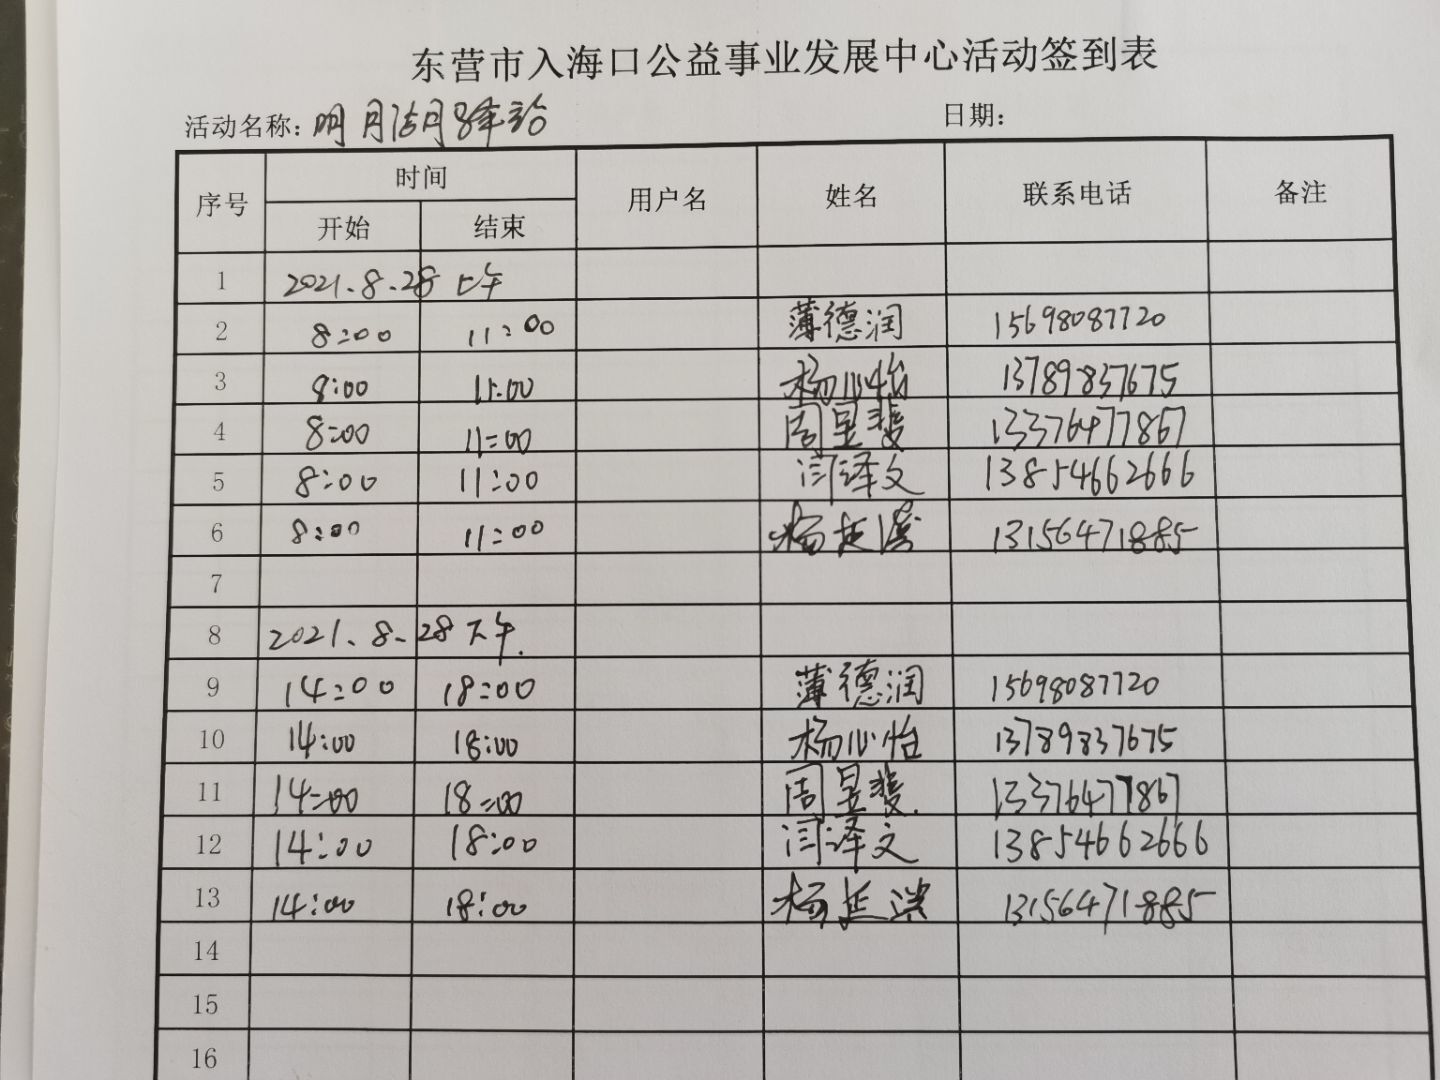 东营市入海口公益事业发展中心活动签到表
活动名称：明月湖驿站 日期：
序号 时间 用户名 姓名 联系电话 备注
开始 结束
1 2021.8.28 上午
2 8:00 11:00 薄德润 15698087720
3 8:00 11:00 杨心怡 13789837675
4 8:00 11:00 周昱斐 13376477867
5 8:00 11:00 闫泽文 13854662666
6 8:00 11:00 杨延 13156471885
7
8 2021.8.28 下午.
9 14:00 18:00 薄德润 15698087720
10 14:00 18:00 杨心怡 13789837675
11 14:00 18:00 周昱斐 13376477867
12 14:00 18:00 闫泽文 13854662666
13 14:00 18:00 杨延 13156471885
14
15
16